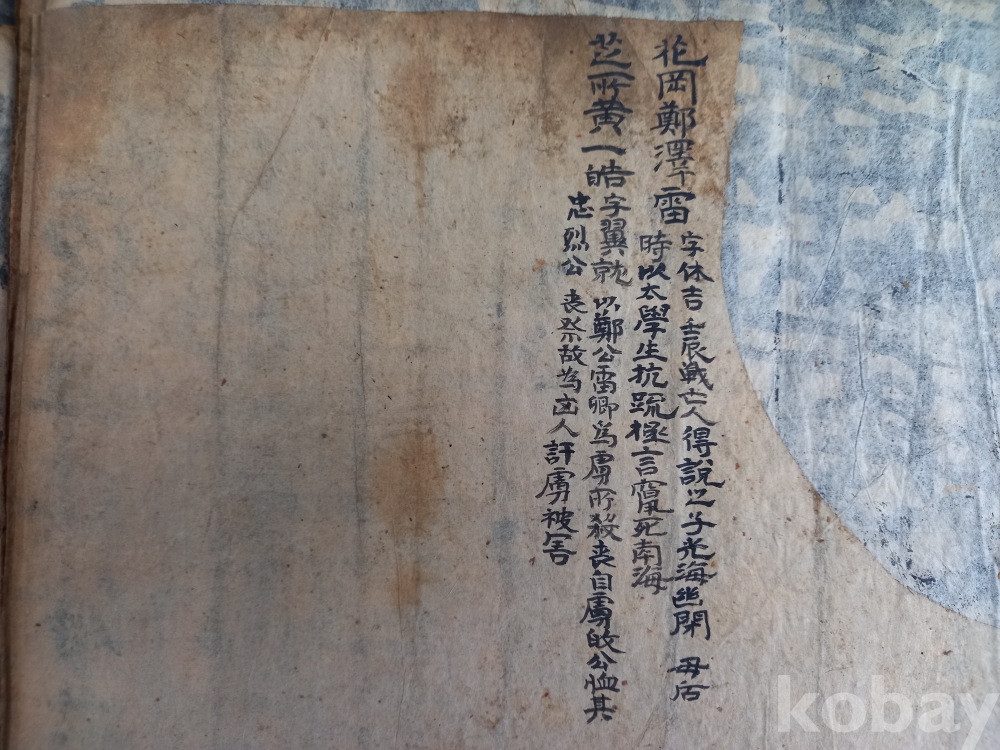 花岡鄭澤雷 字休吉 壬辰戦亡人得說之子光海幽閉 母后
時以太學生抗疏極言竄死南海
芝所黃一皓字翼就 以鄭公雷卿爲虜所殺喪自虜的公恤其
忠烈公 喪祭故為凶人訐虜被害
kobay